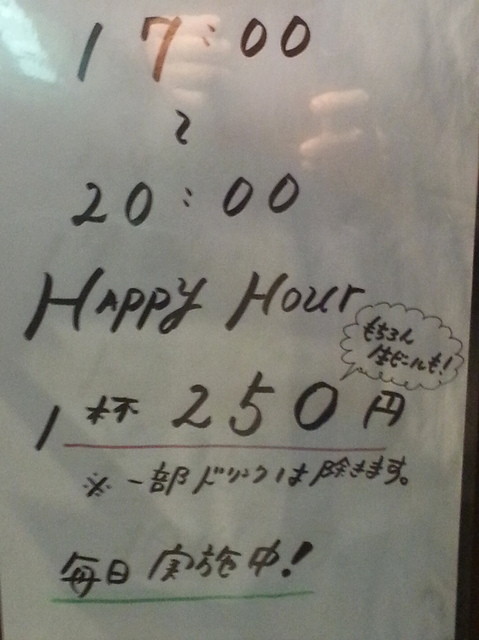 17:00
~
20:00
Happy Hour
もちろん
生ビールも!
1杯 250円
※一部ドリンクは除きます。
毎日実施中!